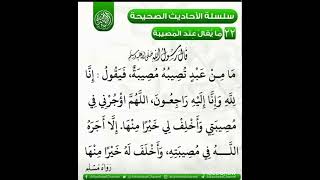 سلسلة الأحاديث الصحيحة
٢٢ ما يقال عند المصيبة
قال رسول الله ﷺ
مَا مِنْ عَبْدٍ تُصِيبُهُ مُصِيبَةٌ، فَيَقُولُ: إِنَّا
لِلَّهِ وَإِنَّا إِلَيْهِ رَاجِعُونَ، اللَّهُمَّ أْجُرْنِي فِي
مُصِيبَتِي وَأَخْلِفْ لِي خَيْرًا مِنْهَا. إِلَّا أَجَرَهُ
اللَّهُ فِي مُصِيبَتِهِ، وَأَخْلَفَ لَهُ خَيْرًا مِنْهَا
رواه مسلم